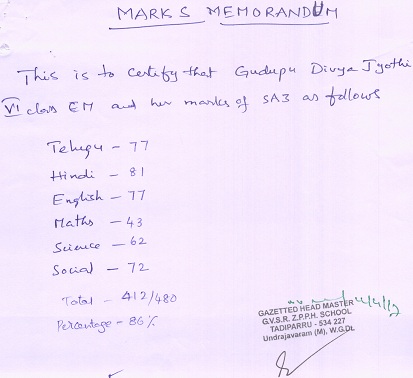 MARKS MEMORANDUM
This is to certify that Gudupu Divya Jyothi
VI class EM and her marks of SA3 as follows
Telugu - 77
Hindi - 81
English - 77
Maths - 43
Science - 62
Social - 72
Total - 412/480
Percentage - 86%
GAZETTED HEAD MASTER
G.V.S.R. Z.P.P.H. SCHOOL
TADIPARRU - 534 227
Undrajavaram (M), W.G.Dt.